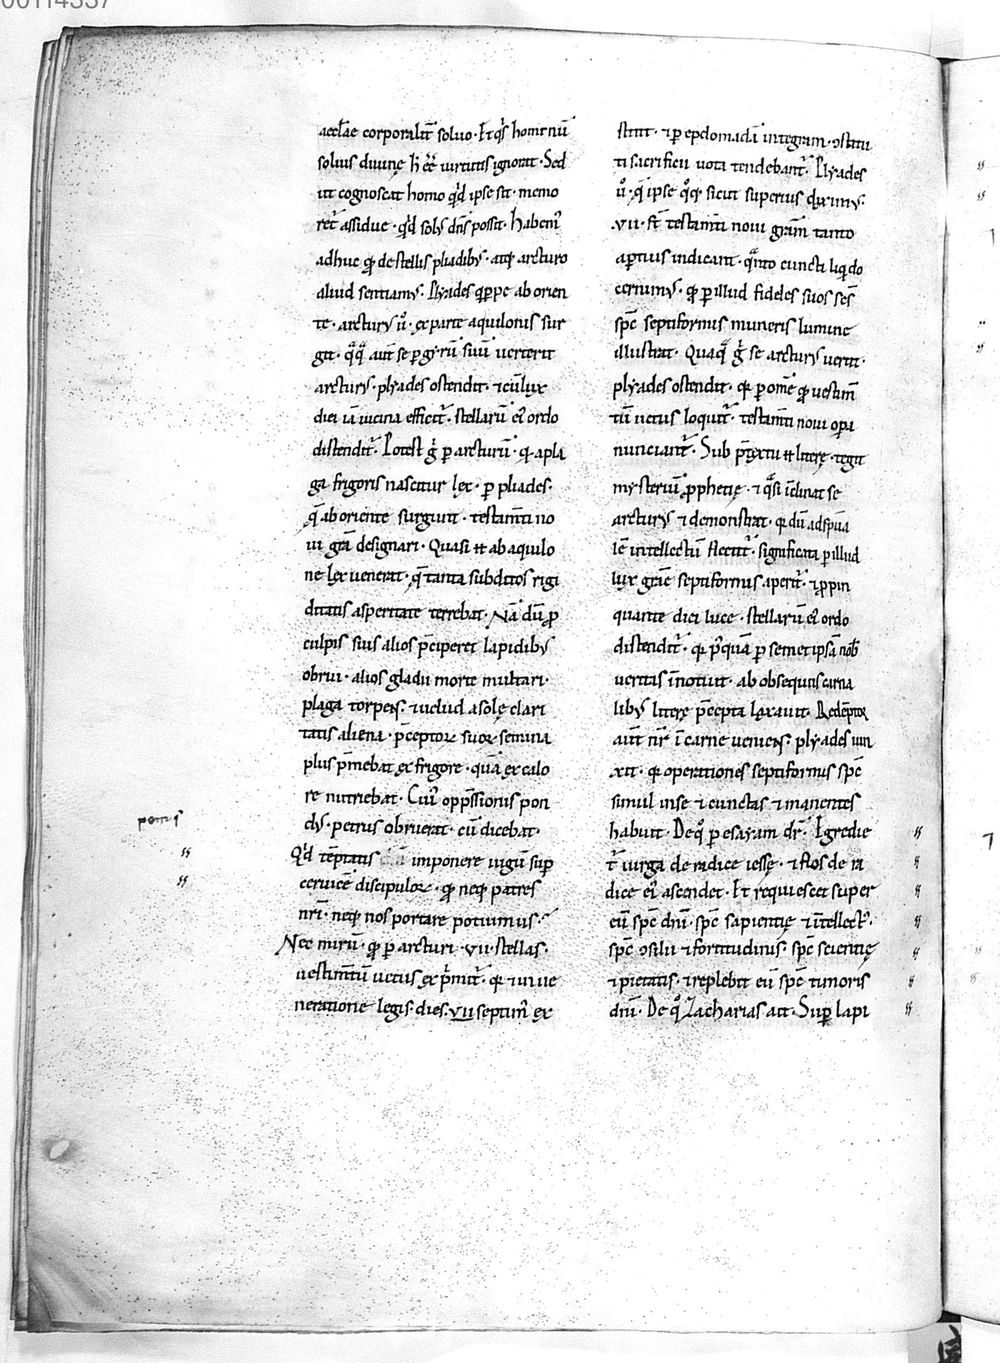 00114337
aeccl̄ae corporalit̄ soluo. Et q̄s hominū
solius diuinę h̄ eē uirtutis ignorat. Sed
ut cognoscat homo qd̄ ipse sit. memo
ret̄ assidue. qd̄ solꝰ dn̄s possit. Habem̄
adhuc qđ de stellis pliadibꝰ. atq; arcturo
aliud sentiamꝰ. Plyades q̄ppe ab orien
te. arcturꝰ ū. ex parte aquilonis sur
git. q̄q̄ aut̄ se p gyrū suū uerterit
arcturꝰ. plyades ostendit. ⁊ cū lux
diei iā uicina efficit̄. stellarū eī ordo
distendit̄. Potest g̊ p arcturū. qui a pla
ga frigoris nascitur lex. p pliades.
q̄ ab oriente surgunt. testam̄ti no
ui grā designari. Quasi ⁊t ab aquilo
ne lex uenerat. q̄ tanta subditos rigi
ditatis asperitate terrebat. Nā dū p̱
culpis suis alios p̄ciperet lapidibꝰ
obrui. alios gladii morte multari.
plaga torpens. ⁊ uelud a sole clari
tatis aliena. p̄ceptoꝝ suoꝝ semina
plus p̄mebat ex frigore. quā ex calo
re nutriebat. Cuiꝰ opp̄ssionis pon
dꝰ. petrus obruerat. cū dicebat.
petrꝰ
Qd̄ tēptatis imponere iugū sup
ceruicē discipuloꝝ. qđ neq; patres
nr̄i. neq; nos portare potuimus.
Nec mirū. qđ p arcturi .vii. stellas.
uestim̄tū uetus exp̄mit̄. q; ⁊ in ue
neratione legis. dies .vii septim̄ ex
stitit. ⁊ p epdomadā integram. ↄstitu
ti sacrificii uota tendebant̄. Plyades
ū. q̄ ipse q̊q; sicut superius diximꝰ.
.vii. st̄. testam̄ti noui gram̄ tanto
aptius indicant. q̄nto cuncti liquido
cernimꝰ. qđ p illud fideles suos sēs
spc̄ septiformis muneris lumine
illustrat. Quaq̄ g̊ se arcturꝰ uertit.
plyades ostendit. q; p om̄e qđ uestim̄
tū uetus loquit̄. testam̄ti noui opa
nunciant̄. Sub p̄textu ⁊t litterę. tegit
mysteriū p̱phetię. ⁊ q̄si īclinat se
arcturꝰ ⁊ demonstrat. q; dū ad sp̄ua
lē intellectū flectit̄. significata p illud
lux gratię septiformis aperit̄. ⁊ p̱pin
quante diei luce. stellarū eī ordo
distendit̄. q; p̄quā p semet ipsā nob̄
ueritas īnotuit. ab obsequiis carna
libꝰ litterę p̄cepta laxauit. Redēptor
aut̄ nr̄ ī carne ueniens. plyades iun
xit. q; operationes septiformis spc̄
simul in se ⁊ cunctas ⁊ manentes
habuit. De q̊ p esayam dr̄. Egredie
t̄ uirga de radice iesse. ⁊ flos de ra
dice eī ascendet. Et requiescet super
eū spc̄ dn̄i. spc̄ sapientię ⁊ ītellectꝰ.
spc̄ ↄsilii ⁊ fortitudinis. spc̄ scientię
⁊ pietatis. ⁊ replebit eū spc̄ timoris
dn̄i. De q̊ Zacharias ait. Sup lapi